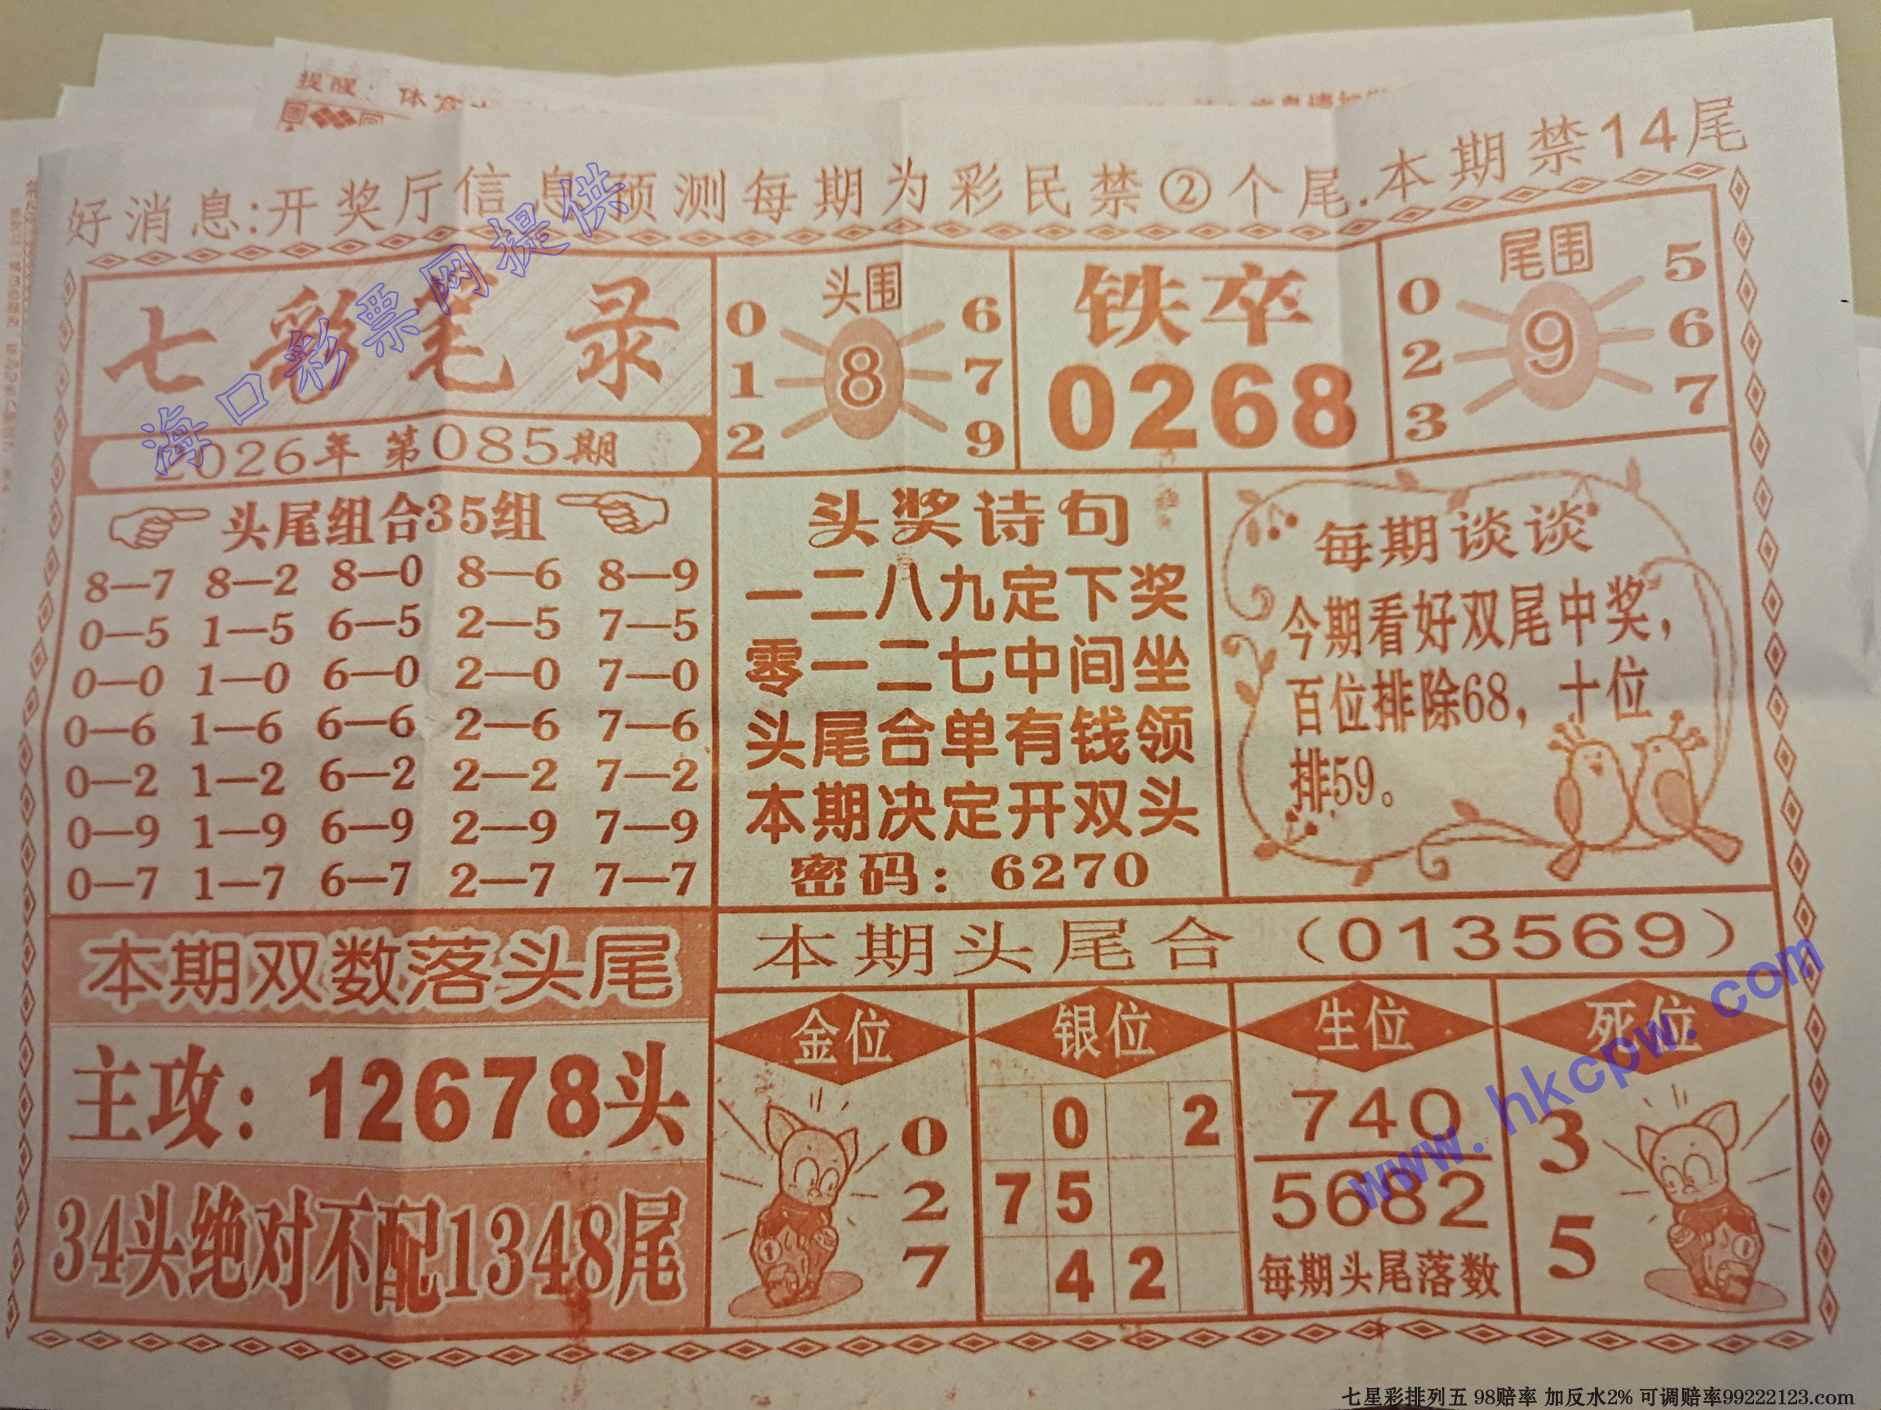 提醒：体
好消息:开奖厅信息预测每期为彩民禁②个尾.本期禁14尾
七彩笔录
2026年 第085期
头围
0 6
1 8 7
2 9
铁卒
0268
尾围
0 5
2 9 6
3 7
头尾组合35组
8—7 8—2 8—0 8—6 8—9
0—5 1—5 6—5 2—5 7—5
0—0 1—0 6—0 2—0 7—0
0—6 1—6 6—6 2—6 7—6
0—2 1—2 6—2 2—2 7—2
0—9 1—9 6—9 2—9 7—9
0—7 1—7 6—7 2—7 7—7
头奖诗句
一二八九定下奖
零一二七中间坐
头尾合单有钱领
本期决定开双头
密码：6270
每期谈谈
今期看好双尾中奖，
百位排除68，十位
排59。
本期双数落头尾
主攻：12678头
34头绝对不配1348尾
本期头尾合（013569）
金位
0
2
7
银位
0 2
7 5
4 2
生位
740
5682
每期头尾落数
死位
3
5
海口彩票网提供
www.hkcpw.com
七星彩排列五 98赔率 加反水2% 可调赔率99222123.com